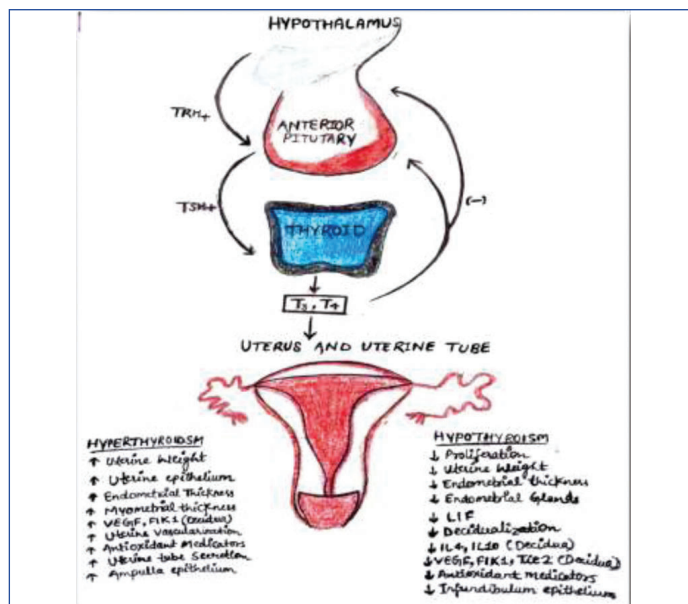 HYPOTHALAMUS
TRH+
ANTERIOR
PITUTARY
TSH+
(-)
THYROID
T3, T4
UTERUS AND UTERINE TUBE
HYPERTHYROIDSM
↑ Uterine Weight
↑ Uterine epithelium
↑ Endometrial Thickness
↑ Myometrial thickness
↑ VEGF, FIK1 (Decidua)
↑ Uterine vascularization
↑ Antioxidant Medicators
↑ Uterine tube Secretion
↑ Ampulla epithelium
HYPOTHYROISM
↓ Proliferation
↓ Uterine Weight
↓ Endometrial thickness
↓ Endometrial Glands
↓ LIF
↓ Decidualization
↓ IL4, IL10 (Decidua)
↓ VEGF, FIK1, Tie2 (Decidua)
↓ Antioxidant medicators
↓ Infundibulum epithelium